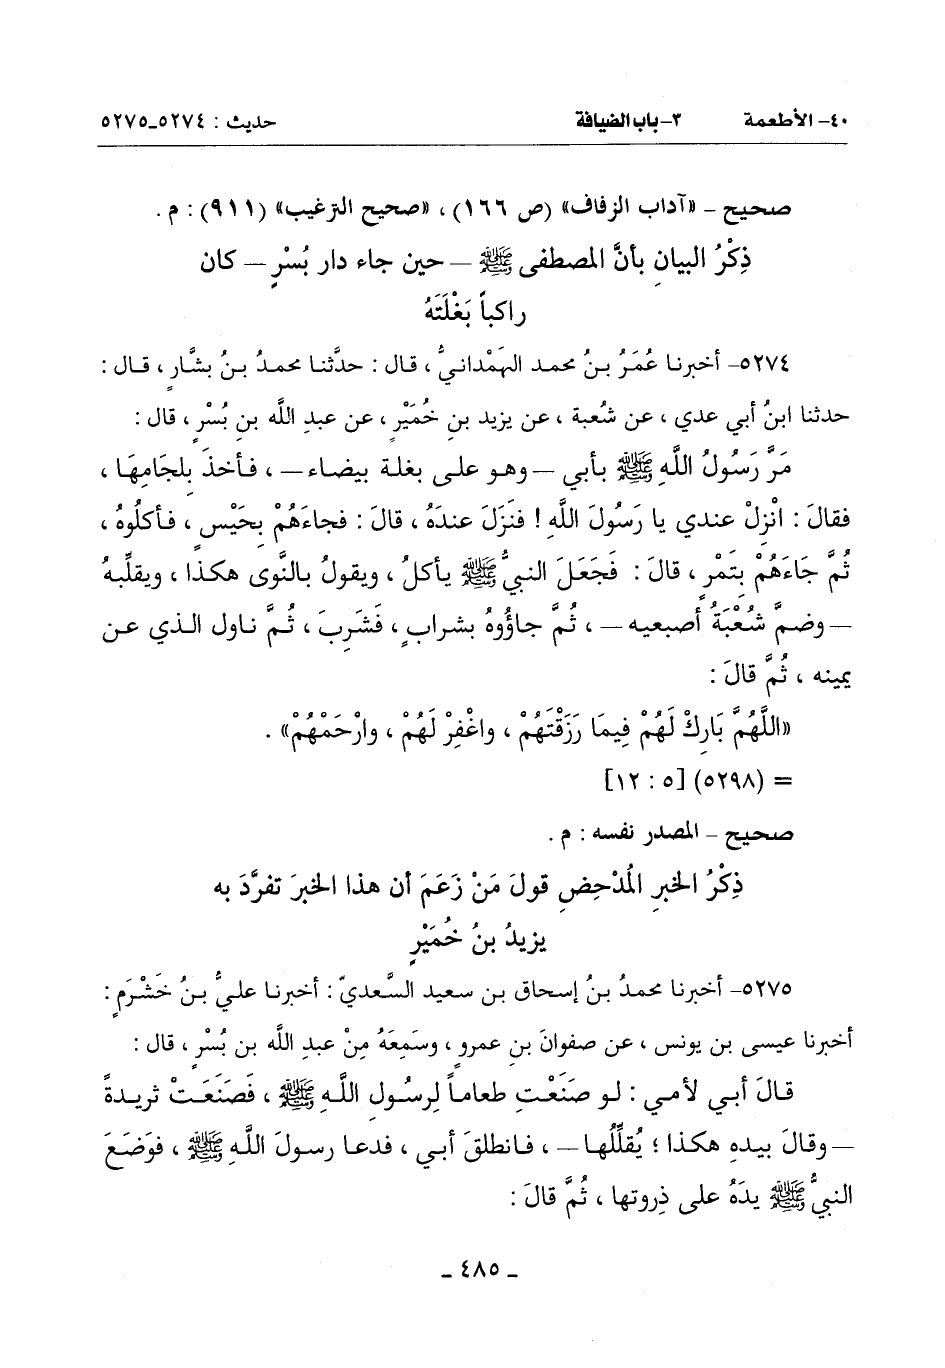 ٤٠- الأطعمة ٣- باب الضيافة حديث : ٥٢٧٤-٥٢٧٥
صحيح - «آداب الزفاف» (ص ١٦٦) ، «صحيح الترغيب» (٩١١) : م .
ذِكْرُ البيانِ بأنَّ المصطفى ﷺ — حين جاء دار بُسْرٍ — كان
راكباً بَغْلَتَهُ
٥٢٧٤- أخبرنا عُمَرُ بنُ محمد الهَمْدانيُّ ، قال : حدَّثنا محمدُ بنُ بشَّارٍ ، قال :
حدثنا ابنُ أبي عدي ، عن شُعبة ، عن يزيد بنِ خُمَيْرٍ ، عن عبد الله بن بُسْرٍ ، قال :
مَرَّ رَسُولُ اللَّهِ ﷺ بأبي —وهو على بغلة بيضاء— ، فأخذَ بلجَامِهَا ،
فقالَ : انْزِلْ عندي يا رَسُولَ اللَّهِ ! فنَزَلَ عندَهُ ، قالَ : فجاءَهُمْ بِحَيْسٍ ، فأكلُوهُ ،
ثُمَّ جَاءَهُمْ بِتَمْرٍ ، قالَ : فَجَعَلَ النبيُّ ﷺ يأكلُ ، ويقولُ بالنَّوى هكذا ، ويقلِّبهُ
—وضمَّ شُعْبَةُ أصبعيه— ، ثُمَّ جاؤُوهُ بشرابٍ ، فَشَرِبَ ، ثُمَّ ناول الذي عن
يمينه ، ثُمَّ قالَ :
«اللَّهُمَّ بَارِكْ لَهُمْ فِيمَا رَزَقْتَهُمْ ، واغْفِرْ لَهُمْ ، وارْحَمْهُمْ» .
= (٥٢٩٨) [٥ : ١٢]
صحيح - المصدر نفسه : م .
ذِكْرُ الخبرِ المُدْحِضِ قولَ مَنْ زَعَمَ أن هذا الخبرَ تفرَّدَ به
يزيدُ بنُ خُمَيْرٍ
٥٢٧٥- أخبرنا محمدُ بنُ إسحاق بن سعيد السَّعديّ : أخبرنا عليُّ بنُ خَشْرَمٍ :
أخبرنا عيسى بن يونس ، عن صفوانَ بنِ عمرو ، وسَمِعَهُ مِنْ عبد الله بن بُسْرٍ ، قال :
قالَ أبي لأمي : لو صَنَعْتِ طعاماً لِرسُول اللَّهِ ﷺ ، فَصَنَعَتْ ثريدةً
—وقالَ بيدهِ هكذا ؛ يُقلِّلُها— ، فانطلقَ أبي ، فدعا رسولَ اللَّهِ ﷺ ، فوَضَعَ
النبيُّ ﷺ يدَهُ على ذِروتها ، ثُمَّ قالَ :
- ٤٨٥ -